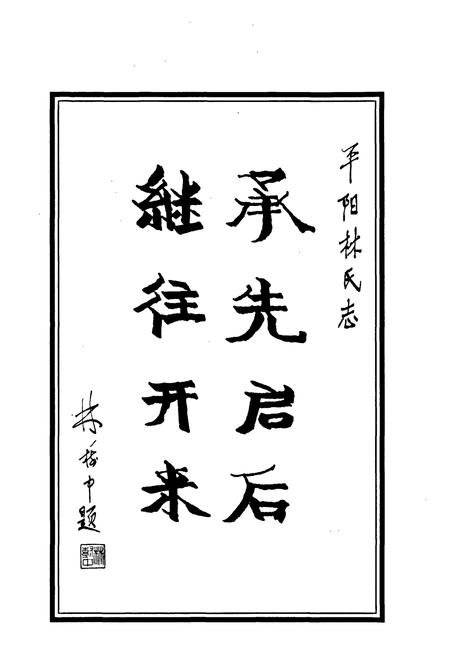 平阳林氏志
承先启后
継往开来
林
中题